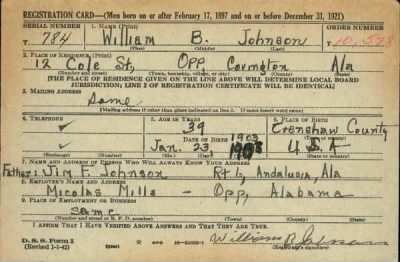 REGISTRATION CARD—(Men born on or after February 17, 1897 and on or before December 31, 1921)
SERIAL NUMBER 1. NAME (Print) ORDER NUMBER
T 784 William B. Johnson T 10,528
(First) (Middle) (Last)
2. PLACE OF RESIDENCE (Print)
12 Cole St, Opp Covington Ala
(Number and street) (Town, township, village, or city) (County) (State)
[THE PLACE OF RESIDENCE GIVEN ON THE LINE ABOVE WILL DETERMINE LOCAL BOARD
JURISDICTION; LINE 2 OF REGISTRATION CERTIFICATE WILL BE IDENTICAL]
3. MAILING ADDRESS
Same
[Mailing address if other than place indicated on line 2. If same insert word same]
4. TELEPHONE 5. AGE IN YEARS 6. PLACE OF BIRTH
✓ 39 Crenshaw County
DATE OF BIRTH 1903 (Town or county)
✓ Jan. 23, 1903 U.S.A
(Exchange) (Number) (Mo.) (Day) (Yr.) (State or country)
7. NAME AND ADDRESS OF PERSON WHO WILL ALWAYS KNOW YOUR ADDRESS
Father: Jim F. Johnson Rt 1, Andalusia, Ala
8. EMPLOYER'S NAME AND ADDRESS
Micolas Mills — Opp, Alabama
9. PLACE OF EMPLOYMENT OR BUSINESS
Same
(Number and street or R. F. D. number) (Town) (County) (State)
I AFFIRM THAT I HAVE VERIFIED ABOVE ANSWERS AND THAT THEY ARE TRUE.
D. S. S. Form 1 GPO William B Johnson
(Revised 1-1-42) (Registrant's signature)